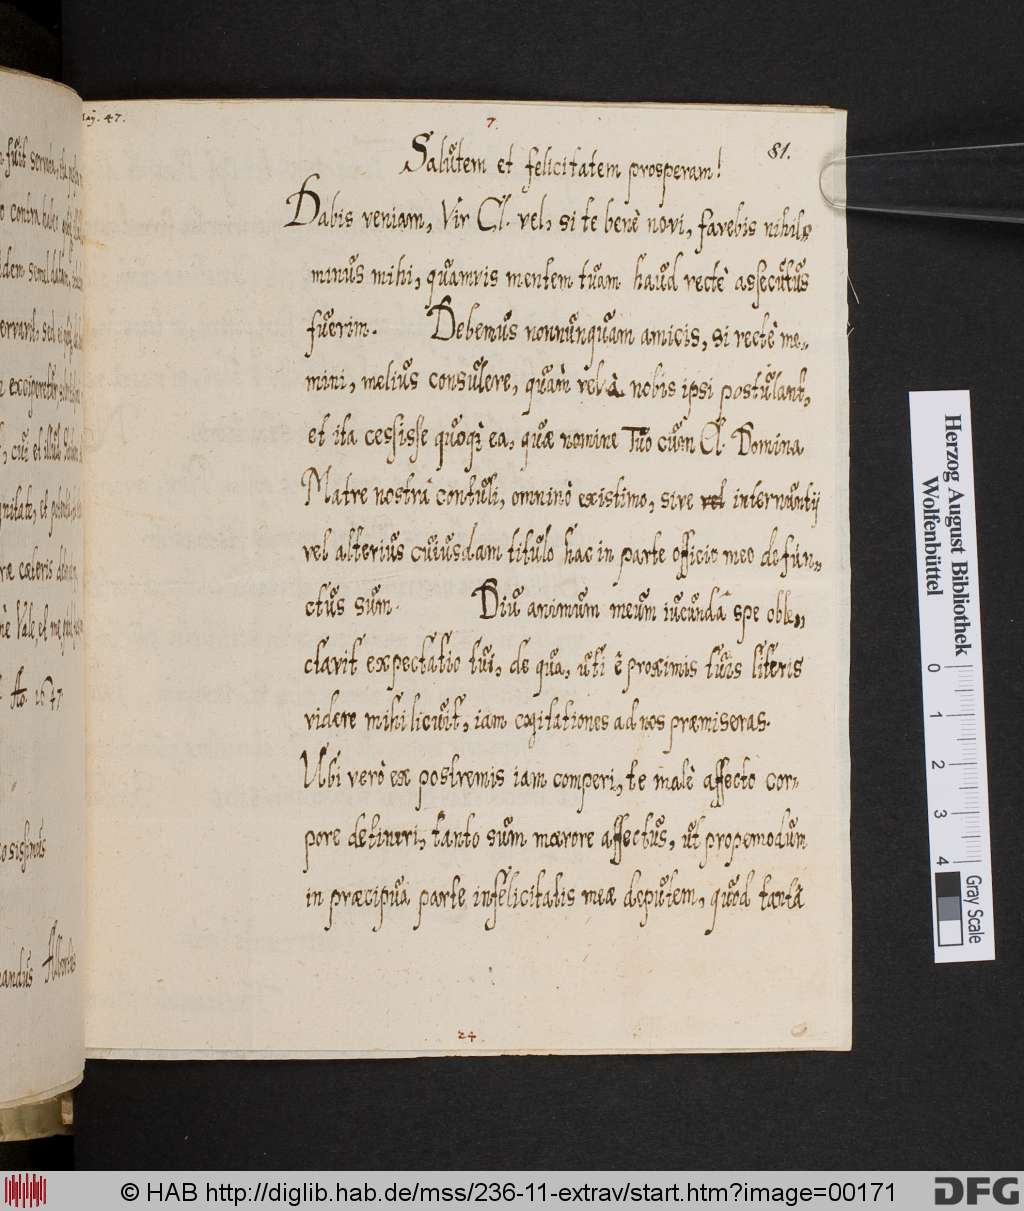 May. 47.
7.
81.
Salutem et felicitatem prosperam!
Dabis veniam, Vir Cl. vel, si te benè novi, favebis nihilo
minus mihi, quamvis mentem tuam haud rectè assecutus
fuerim. Debemus nonnunquam amicis, si rectè me-
mini, melius consulere, quàm vel à nobis ipsi postulant,
et ita cessisse quoqꝫ ea, quæ nomine Tuo cum Cl. Domina
Matre nostrâ contuli, omninò existimo, sive vel internuntij
vel alterius cuiusdam titulo hac in parte officio meo defun-
ctus sum. Diu animum meum iucundâ spe oble-
ctavit expectatio tui, de qua, uti è proximis tuis literis
videre mihi licuit, iam cogitationes ad nos præmiseras.
Ubi verò ex postremis iam comperi, te malè affecto cor-
pore detineri, tanto sum mœrore affectus, ut propemodum
in præcipuâ parte infelicitatis meæ deputem, quod tantâ
24
Ao. 1647
Albertus
Herzog August Bibliothek
Wolfenbüttel
0 1 2 3 4
Gray Scale
© HAB http://diglib.hab.de/mss/236-11-extrav/start.htm?image=00171
DFG